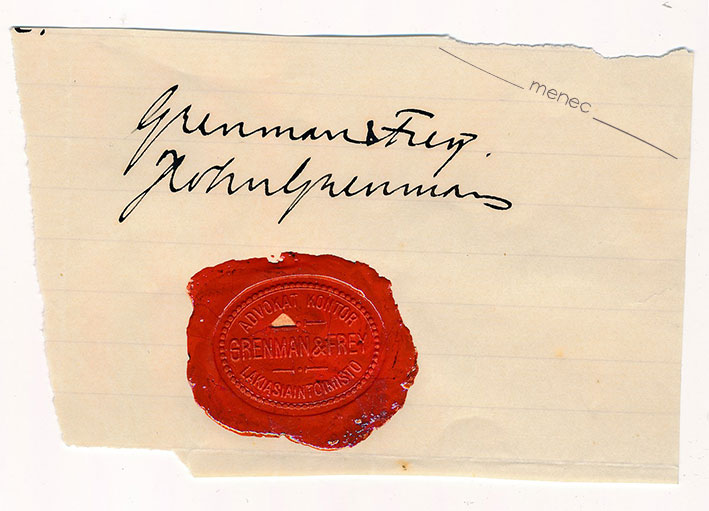 menec
Grenman & Frey.
John Grenman
ADVOKAT KONTOR
GRENMAN & FREY
LAKIASIAINTOIMISTO